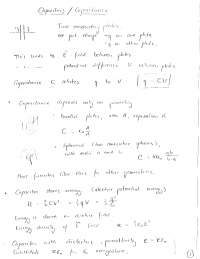 Capacitors / Capacitance
Two conducting plates
we put charge +q on one plate
-q on other plate.
This leads to E field between plates
" " " potential difference V between plates
Capacitance C relates q to V q = CV
• Capacitance depends only on geometry
• parallel plates, area A, separation d
C = ε₀ A/d
• spherical (two concentric spheres),
with radii a and b C = 4πε₀ ab/(b-a)
Most formulas like these for other geometries.
• Capacitor stores energy (electric potential energy)
U = ½CV² = ½qV = ½ q²/C
Energy is stored in electric field
Energy density of E field u = ½ε₀E²
• Capacitor with dielectric, permittivity
Substitute for ε₀ in everywhere.
1